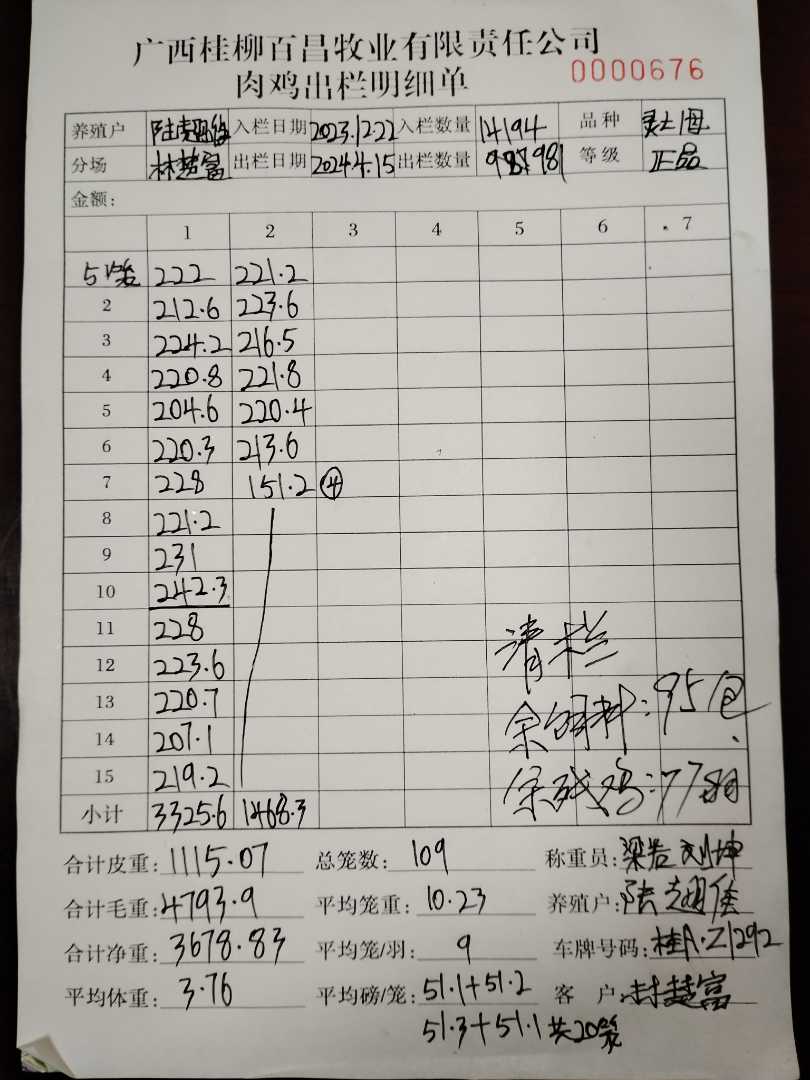 广西桂柳百昌牧业有限责任公司
肉鸡出栏明细单 0000676
养殖户 陆 入栏日期 2023.12.22 入栏数量 14194 品种
分场 林楚富 出栏日期 2024.4.15 出栏数量 981 等级 正品
金额:
1 2 3 4 5 6 7
5笼 222 221.2
2 212.6 223.6
3 224.2 216.5
4 220.8 221.8
5 204.6 220.4
6 220.3 213.6
7 228 151.2 ④
8 221.2
9 231
10 242.3
11 228
12 223.6
13 220.7
14 207.1
15 219.2
小计 3325.6 1468.3
清栏
余饲料:95包
余残鸡:77羽
合计皮重:1115.07 总笼数:109 称重员:梁浩 刘坤
合计毛重:4793.9 平均笼重:10.23 养殖户:陆
合计净重:3678.83 平均笼/羽:9 车牌号码:桂A·Z1292
平均体重:3.76 平均磅/笼:51.1+51.2 客户:林楚富
51.3+51.1 共20笼